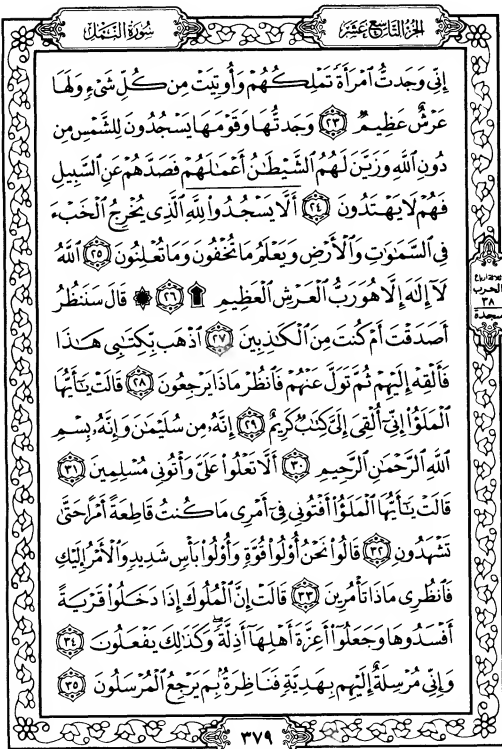 الجزء التاسع عشر
سورة النمل
إِنِّي وَجَدتُّ ٱمْرَأَةً تَمْلِكُهُمْ وَأُوتِيَتْ مِن كُلِّ شَىْءٍ وَلَهَا
عَرْشٌ عَظِيمٌ ﴿٢٣﴾ وَجَدتُّهَا وَقَوْمَهَا يَسْجُدُونَ لِلشَّمْسِ مِن
دُونِ ٱللَّهِ وَزَيَّنَ لَهُمُ ٱلشَّيْطَـٰنُ أَعْمَـٰلَهُمْ فَصَدَّهُمْ عَنِ ٱلسَّبِيلِ
فَهُمْ لَا يَهْتَدُونَ ﴿٢٤﴾ أَلَّا يَسْجُدُوا۟ لِلَّهِ ٱلَّذِى يُخْرِجُ ٱلْخَبْءَ
فِى ٱلسَّمَـٰوَٰتِ وَٱلْأَرْضِ وَيَعْلَمُ مَا تُخْفُونَ وَمَا تُعْلِنُونَ ﴿٢٥﴾ ٱللَّهُ
لَآ إِلَـٰهَ إِلَّا هُوَ رَبُّ ٱلْعَرْشِ ٱلْعَظِيمِ ۩ ﴿٢٦﴾ ۞ قَالَ سَنَنظُرُ
أَصَدَقْتَ أَمْ كُنتَ مِنَ ٱلْكَـٰذِبِينَ ﴿٢٧﴾ ٱذْهَب بِّكِتَـٰبِى هَـٰذَا
فَأَلْقِهْ إِلَيْهِمْ ثُمَّ تَوَلَّ عَنْهُمْ فَٱنظُرْ مَاذَا يَرْجِعُونَ ﴿٢٨﴾ قَالَتْ يَـٰٓأَيُّهَا
ٱلْمَلَؤُا۟ إِنِّىٓ أُلْقِىَ إِلَىَّ كِتَـٰبٌ كَرِيمٌ ﴿٢٩﴾ إِنَّهُۥ مِن سُلَيْمَـٰنَ وَإِنَّهُۥ بِسْمِ
ٱللَّهِ ٱلرَّحْمَـٰنِ ٱلرَّحِيمِ ﴿٣٠﴾ أَلَّا تَعْلُوا۟ عَلَىَّ وَأْتُونِى مُسْلِمِينَ ﴿٣١﴾
قَالَتْ يَـٰٓأَيُّهَا ٱلْمَلَؤُا۟ أَفْتُونِى فِىٓ أَمْرِى مَا كُنتُ قَاطِعَةً أَمْرًا حَتَّىٰ
تَشْهَدُونِ ﴿٣٢﴾ قَالُوا۟ نَحْنُ أُو۟لُوا۟ قُوَّةٍ وَأُو۟لُوا۟ بَأْسٍ شَدِيدٍ وَٱلْأَمْرُ إِلَيْكِ
فَٱنظُرِى مَاذَا تَأْمُرِينَ ﴿٣٣﴾ قَالَتْ إِنَّ ٱلْمُلُوكَ إِذَا دَخَلُوا۟ قَرْيَةً
أَفْسَدُوهَا وَجَعَلُوٓا۟ أَعِزَّةَ أَهْلِهَآ أَذِلَّةً ۖ وَكَذَٰلِكَ يَفْعَلُونَ ﴿٣٤﴾
وَإِنِّى مُرْسِلَةٌ إِلَيْهِم بِهَدِيَّةٍ فَنَاظِرَةٌۢ بِمَ يَرْجِعُ ٱلْمُرْسَلُونَ ﴿٣٥﴾
ثلاثة أرباع
الحزب
٣٨
سجدة
٣٧٩